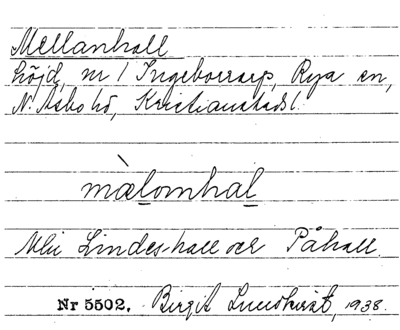 Mellanhall
höjd, nr 1 Ingeborrarp, Rya sn,
N. Åsbo hd, Kristianstads l.
màlomhal
Mln Lindeshall och Påhall.
Nr 5502. Birgit Lundkvist, 1938.